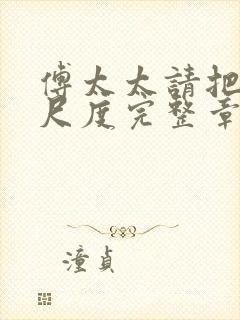 傅太太請把
尺度完整章
潼貞